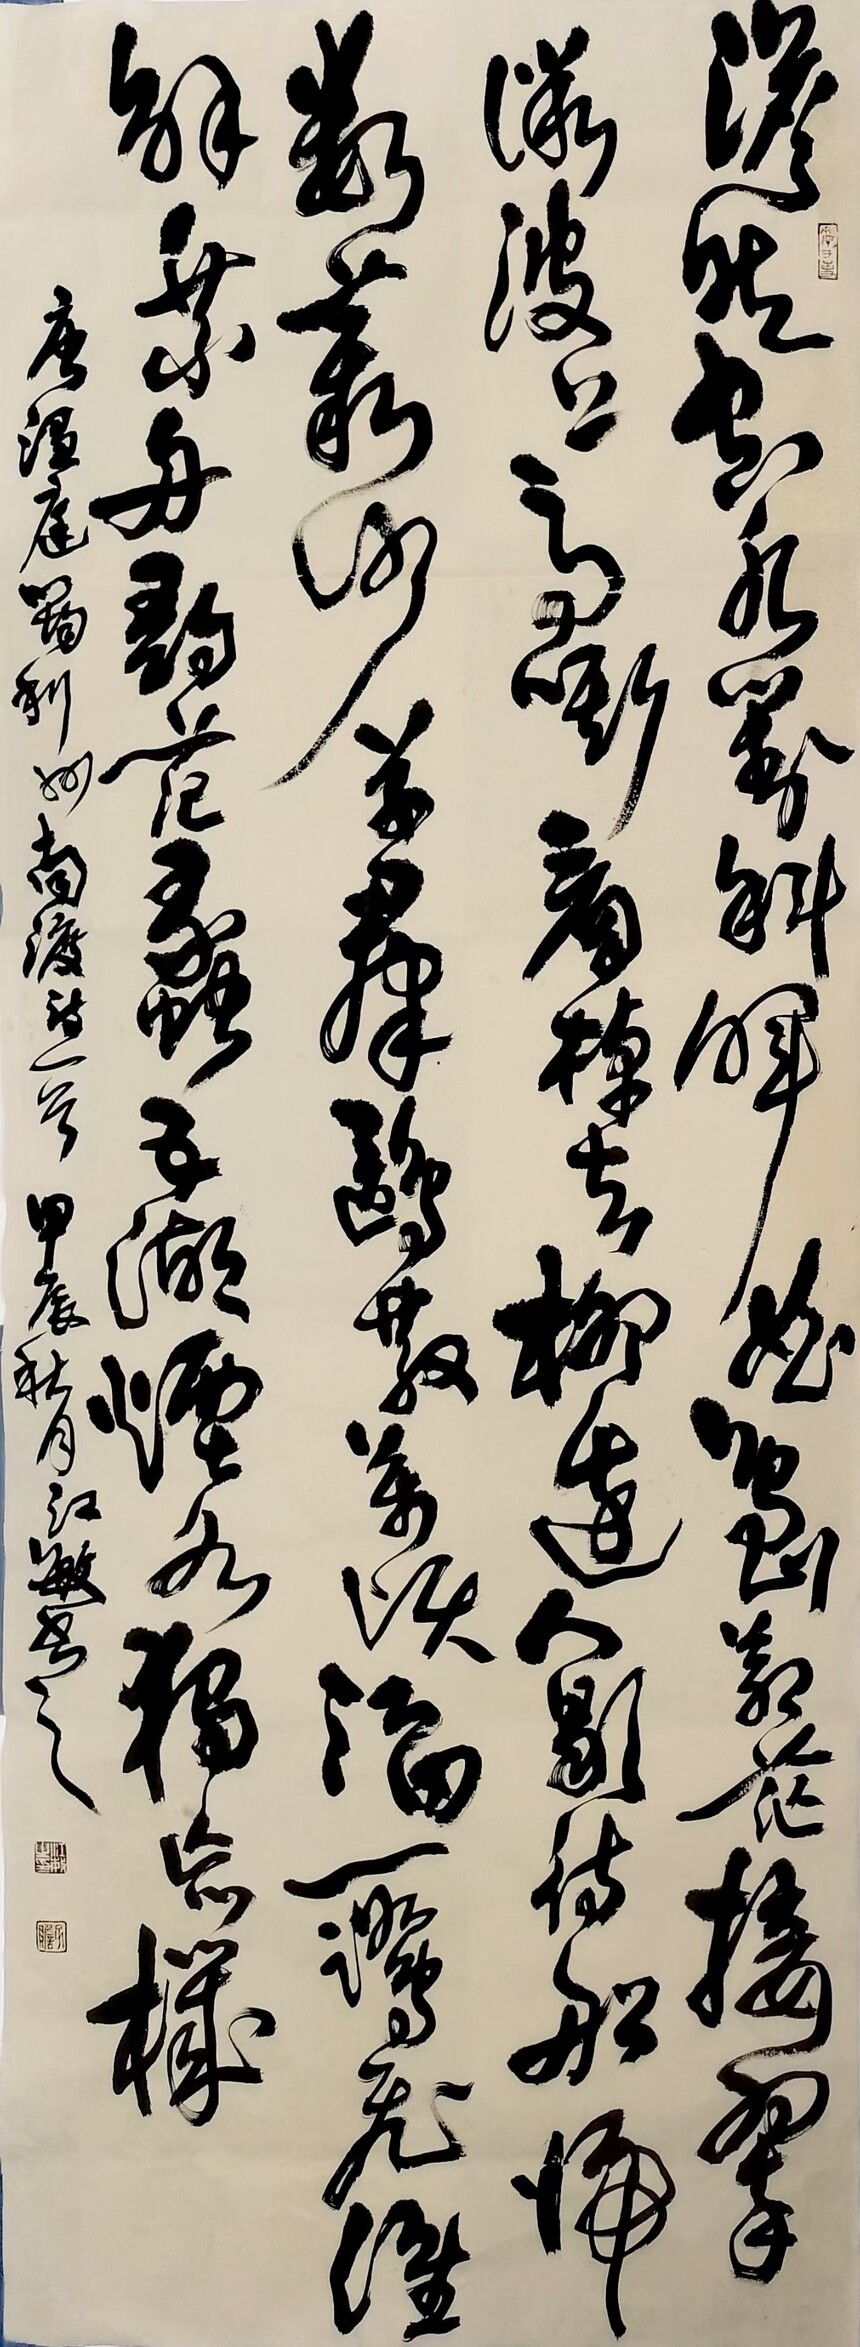 澹然空水對斜暉曲島蒼茫接翠
微波上馬嘶看棹去柳邊人歇待船歸
數叢沙草群鷗散萬頃江田一鷺飛誰
解乘舟尋范蠡五湖煙水獨忘機
唐溫庭筠利州南渡詩一首 甲辰秋月江敏書之